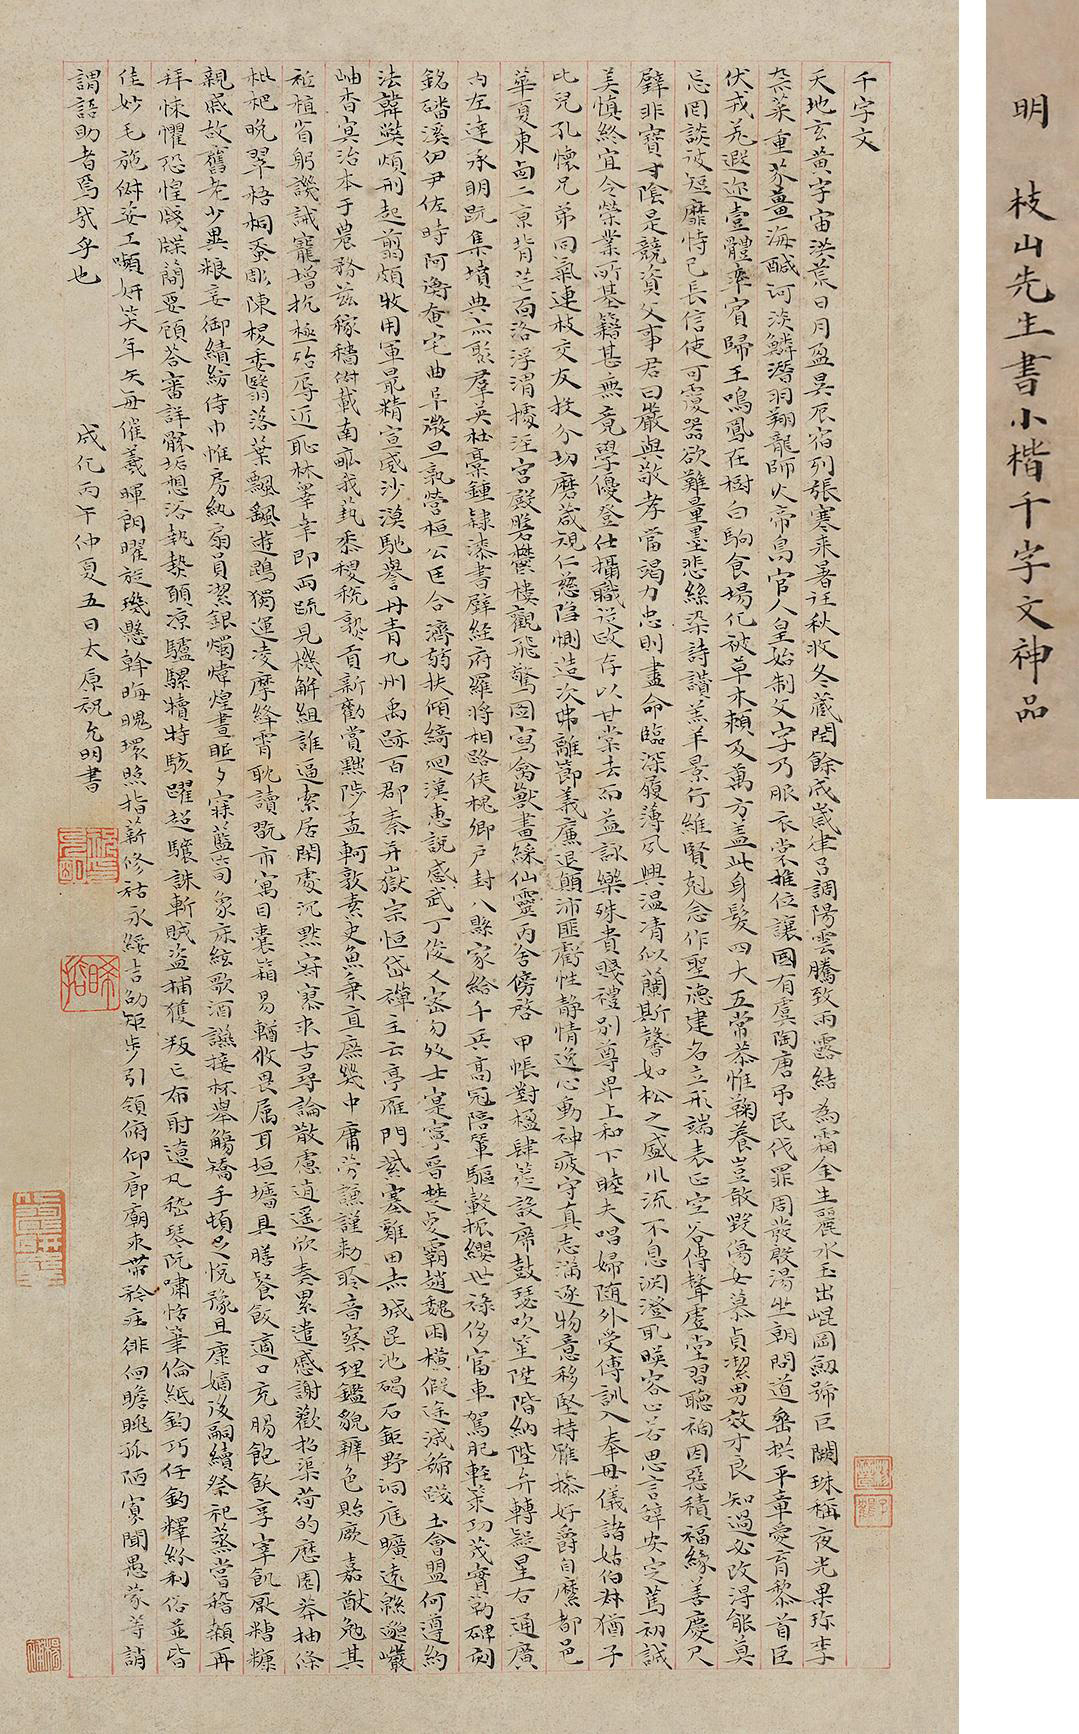 明 枝山先生書小楷千字文神品
千字文
天地玄黃宇宙洪荒日月盈昃辰宿列張寒來暑往秋收冬藏閏餘成歲律呂調陽雲騰致雨露結為霜金生麗水玉出崐岡劍號巨闕珠稱夜光果珍李
柰菜重芥薑海鹹河淡鱗潛羽翔龍師火帝鳥官人皇始制文字乃服衣裳推位讓國有虞陶唐弔民伐罪周發殷湯坐朝問道垂拱平章愛育黎首臣
伏戎羌遐邇壹體率賓歸王鳴鳳在樹白駒食場化被草木賴及萬方蓋此身髮四大五常恭惟鞠養豈敢毀傷女慕貞潔男效才良知過必改得能莫
忘罔談彼短靡恃己長信使可覆器欲難量墨悲絲染詩讚羔羊景行維賢剋念作聖德建名立形端表正空谷傳聲虛堂習聽禍因惡積福緣善慶尺
璧非寶寸陰是競資父事君曰嚴與敬孝當竭力忠則盡命臨深履薄夙興溫凊似蘭斯馨如松之盛川流不息淵澄取暎容止若思言辭安定篤初誠
美慎終宜令榮業所基籍甚無竟學優登仕攝職從政存以甘棠去而益詠樂殊貴賤禮別尊卑上和下睦夫唱婦隨外受傅訓入奉母儀諸姑伯叔猶子
比兒孔懷兄弟同氣連枝交友投分切磨箴規仁慈隱惻造次弗離節義廉退顛沛匪虧性靜情逸心動神疲守真志滿逐物意移堅持雅操好爵自縻都邑
華夏東西二京背芒面洛浮渭據涇宮殿盤鬱樓觀飛驚圖寫禽獸畫綵仙靈丙舍傍啓甲帳對楹肆筵設席鼓瑟吹笙陞階納陛弁轉疑星右通廣
內左達承明既集墳典亦聚羣英杜稾鍾隸漆書壁經府羅將相路俠槐卿戶封八縣家給千兵高冠陪輦驅轂振纓世祿侈富車駕肥輕策功茂實勒碑刻
銘磻溪伊尹佐時阿衡奄宅曲阜微旦孰營桓公匡合濟弱扶傾綺迴漢惠說感武丁俊乂密勿多士寔寧晉楚更霸趙魏困橫假途滅虢踐土會盟何遵約
法韓弊煩刑起翦頗牧用軍最精宣威沙漠馳譽丹青九州禹跡百郡秦并嶽宗恒岱禪主云亭雁門紫塞雞田赤城昆池碣石鉅野洞庭曠遠緜邈巖
岫杳冥治本于農務茲稼穡俶載南畝我藝黍稷稅熟貢新勸賞黜陟孟軻敦素史魚秉直庶幾中庸勞謙謹勑聆音察理鑑貌辨色貽厥嘉猷勉其
祗植省躬譏誡寵增抗極殆辱近恥林睾幸即兩疏見機解組誰逼索居閑處沉默寂寥求古尋論散慮逍遙欣奏累遣慼謝歡招渠荷的歷園莽抽條
枇杷晚翠梧桐蚤彫陳根委翳落葉飄颻遊鵾獨運凌摩絳霄耽讀翫市寓目囊箱易輶攸畏屬耳垣墻具膳餐飯適口充腸飽飫享宰飢厭糟糠
親戚故舊老少異粮妾御績紡侍巾帷房紈扇員潔銀燭煒煌晝眠夕寐藍荀象床絃歌酒讌接杯舉觴矯手頓足悅豫且康嫡後嗣續祭祀蒸嘗稽顙再
拜悚懼恐惶牋牒簡要顧荅審詳骸垢想浴執熱願涼驢騾犢特駭躍超驤誅斬賊盜捕獲叛亡布射遼丸嵇琴阮嘯恬筆倫紙鈞巧任釣釋紛利俗並皆
佳妙毛施俶姿工嚬妍笑年矢每催羲暉朗曜旋璣懸斡晦魄環照指薪修祜永綏吉劭矩步引領俯仰廊廟束帶矜莊徘徊瞻眺孤陋寡聞愚蒙等誚
謂語助者焉哉乎也
成化丙午仲夏五日太原祝允明書